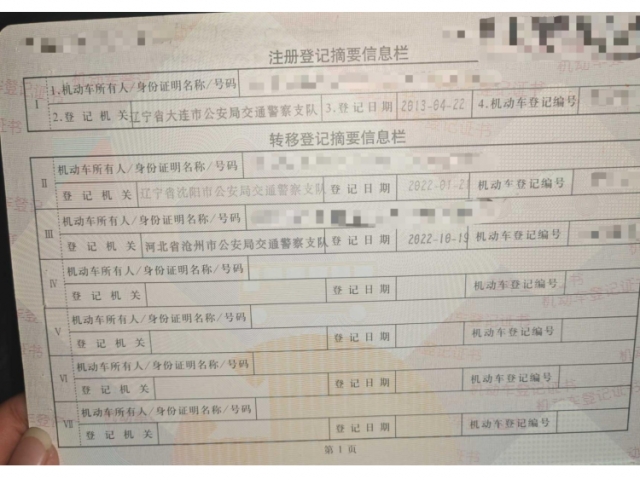 注册登记摘要信息栏
I 1.机动车所有人/身份证明名称/号码
2.登记机关 辽宁省大连市公安局交通警察支队 3.登记日期 2013-04-22 4.机动车登记编号
转移登记摘要信息栏
II 机动车所有人/身份证明名称/号码
登记机关 辽宁省沈阳市公安局交通警察支队 登记日期 2022-01-21 机动车登记编号
III 机动车所有人/身份证明名称/号码
登记机关 河北省沧州市公安局交通警察支队 登记日期 2022-10-19 机动车登记编号
IV 机动车所有人/身份证明名称/号码
登记机关 登记日期 机动车登记编号
V 机动车所有人/身份证明名称/号码
登记机关 登记日期 机动车登记编号
VI 机动车所有人/身份证明名称/号码
登记机关 登记日期 机动车登记编号
VII 机动车所有人/身份证明名称/号码
登记机关 登记日期 机动车登记编号
第1页